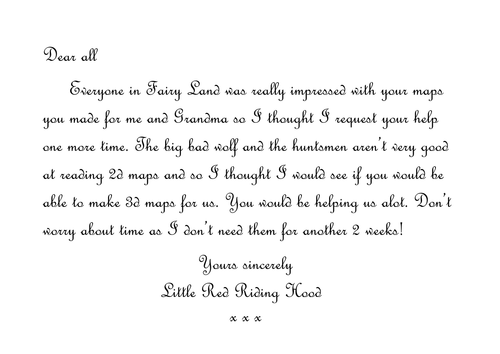 Dear all
Everyone in Fairy Land was really impressed with your maps
you made for me and Grandma so I thought I request your help
one more time. The big bad wolf and the huntsmen aren't very good
at reading 2d maps and so I thought I would see if you would be
able to make 3d maps for us. You would be helping us alot. Don't
worry about time as I don't need them for another 2 weeks!
Yours sincerely
Little Red Riding Hood
x x x